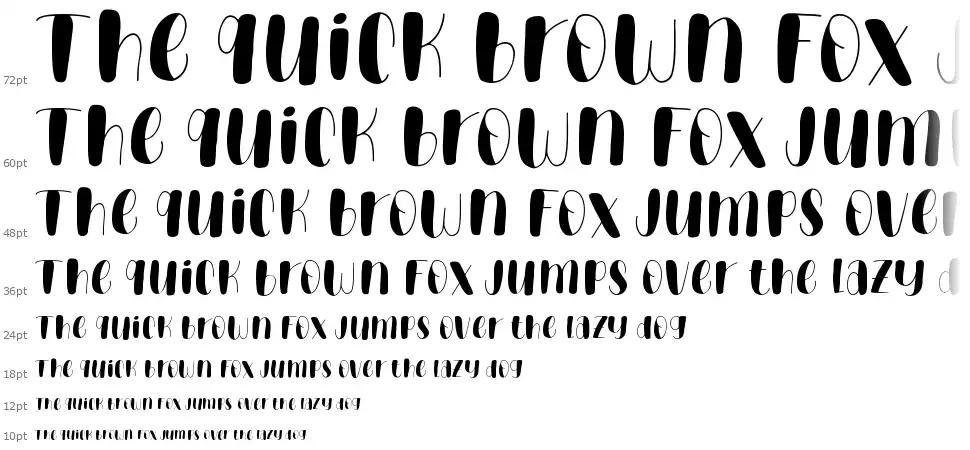 The quick brown fox J
72pt
The quick brown fox jum
60pt
The quick brown fox jumps over
48pt
The quick brown fox jumps over the lazy d
36pt
The quick brown fox jumps over the lazy dog
24pt
The quick brown fox jumps over the lazy dog
18pt
The quick brown fox jumps over the lazy dog
12pt
The quick brown fox jumps over the lazy dog
10pt